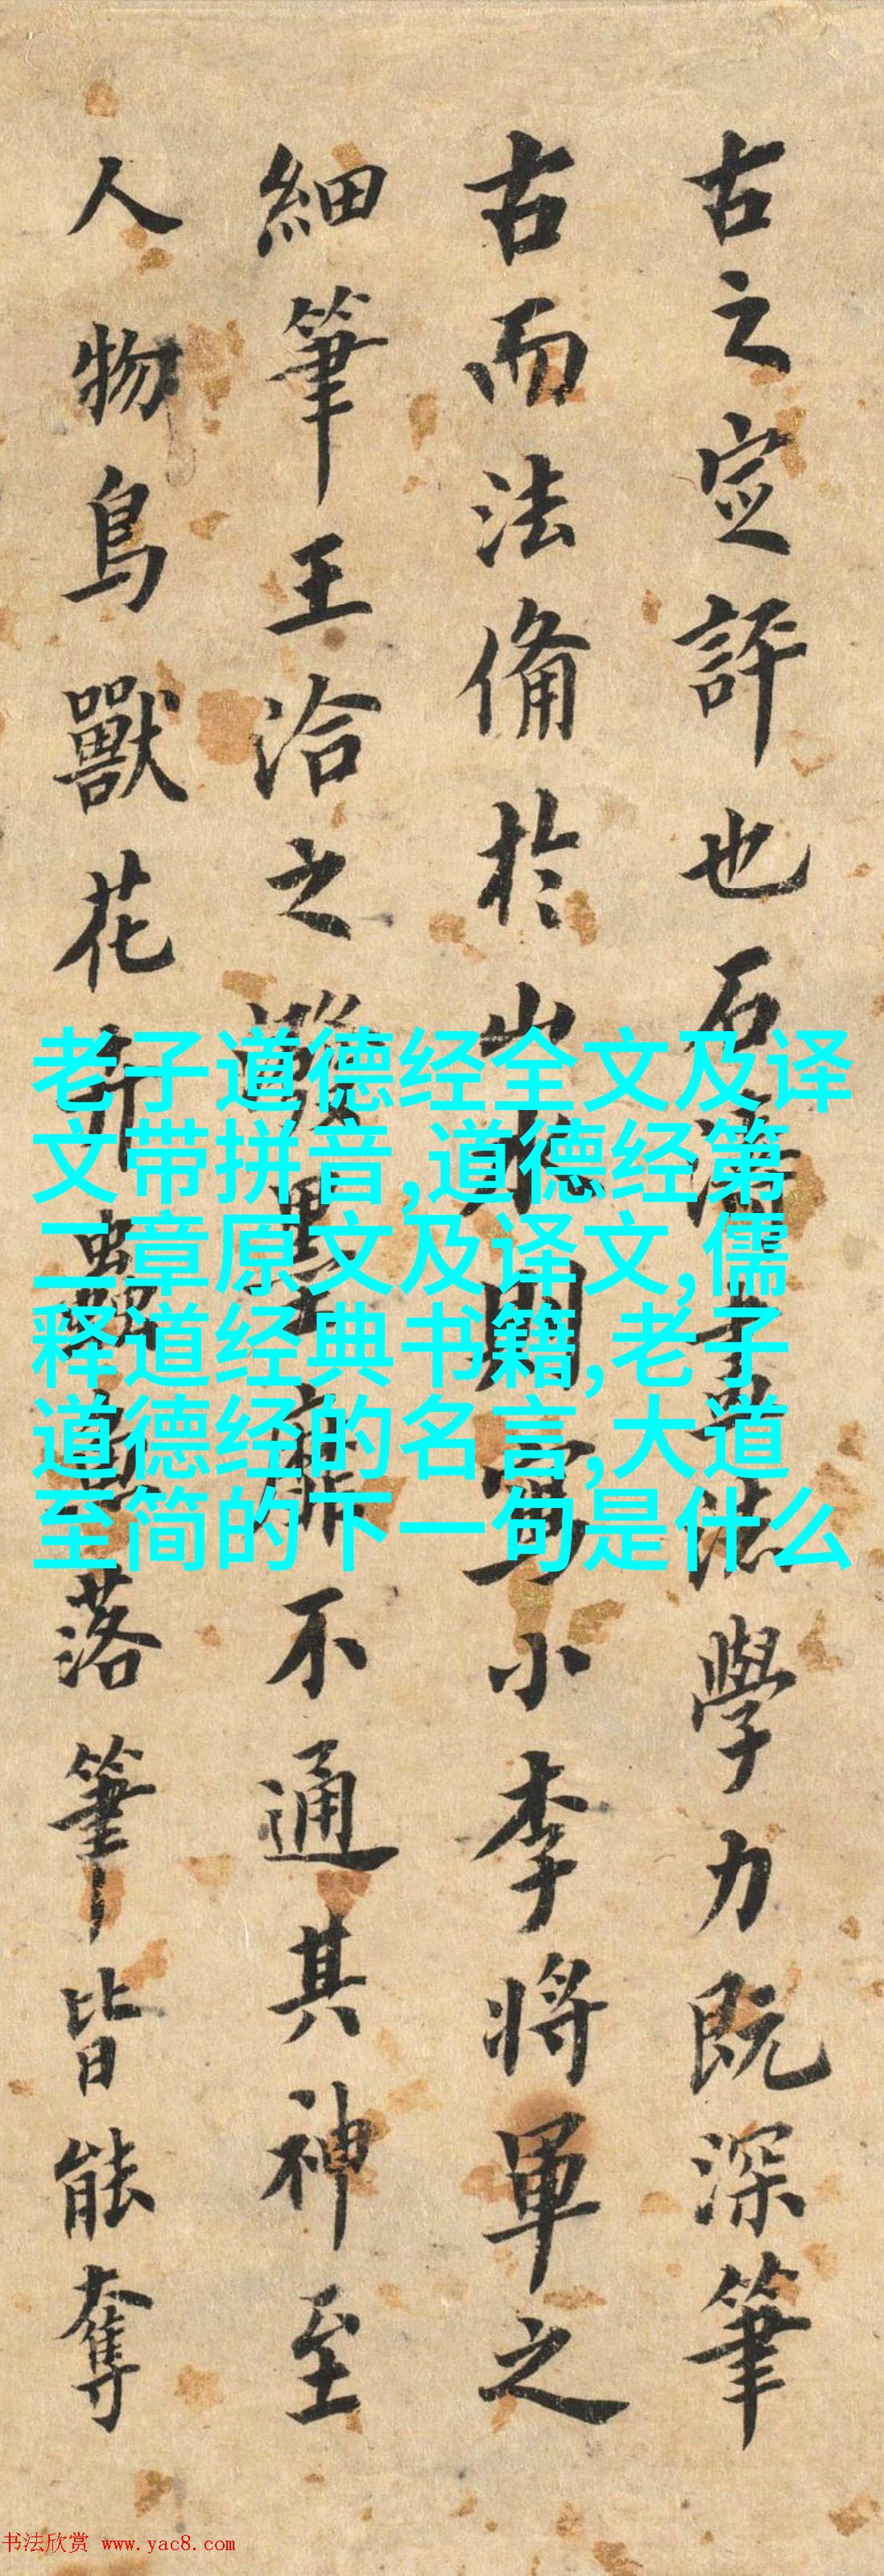 古之定評也石濤書法學力既深筆
古而法備於山水用寫小李將軍之
細筆王洽之潑墨靡不通其神至
人物鳥獸花卉蟲魚落筆皆能奪
老子道德经全文及译
文带拼音,道德经第
二章原文及译文,儒
释道经典书籍,老子
道德经的名言,大道
至简的下一句是什么
书法欣赏 www.yac8.com